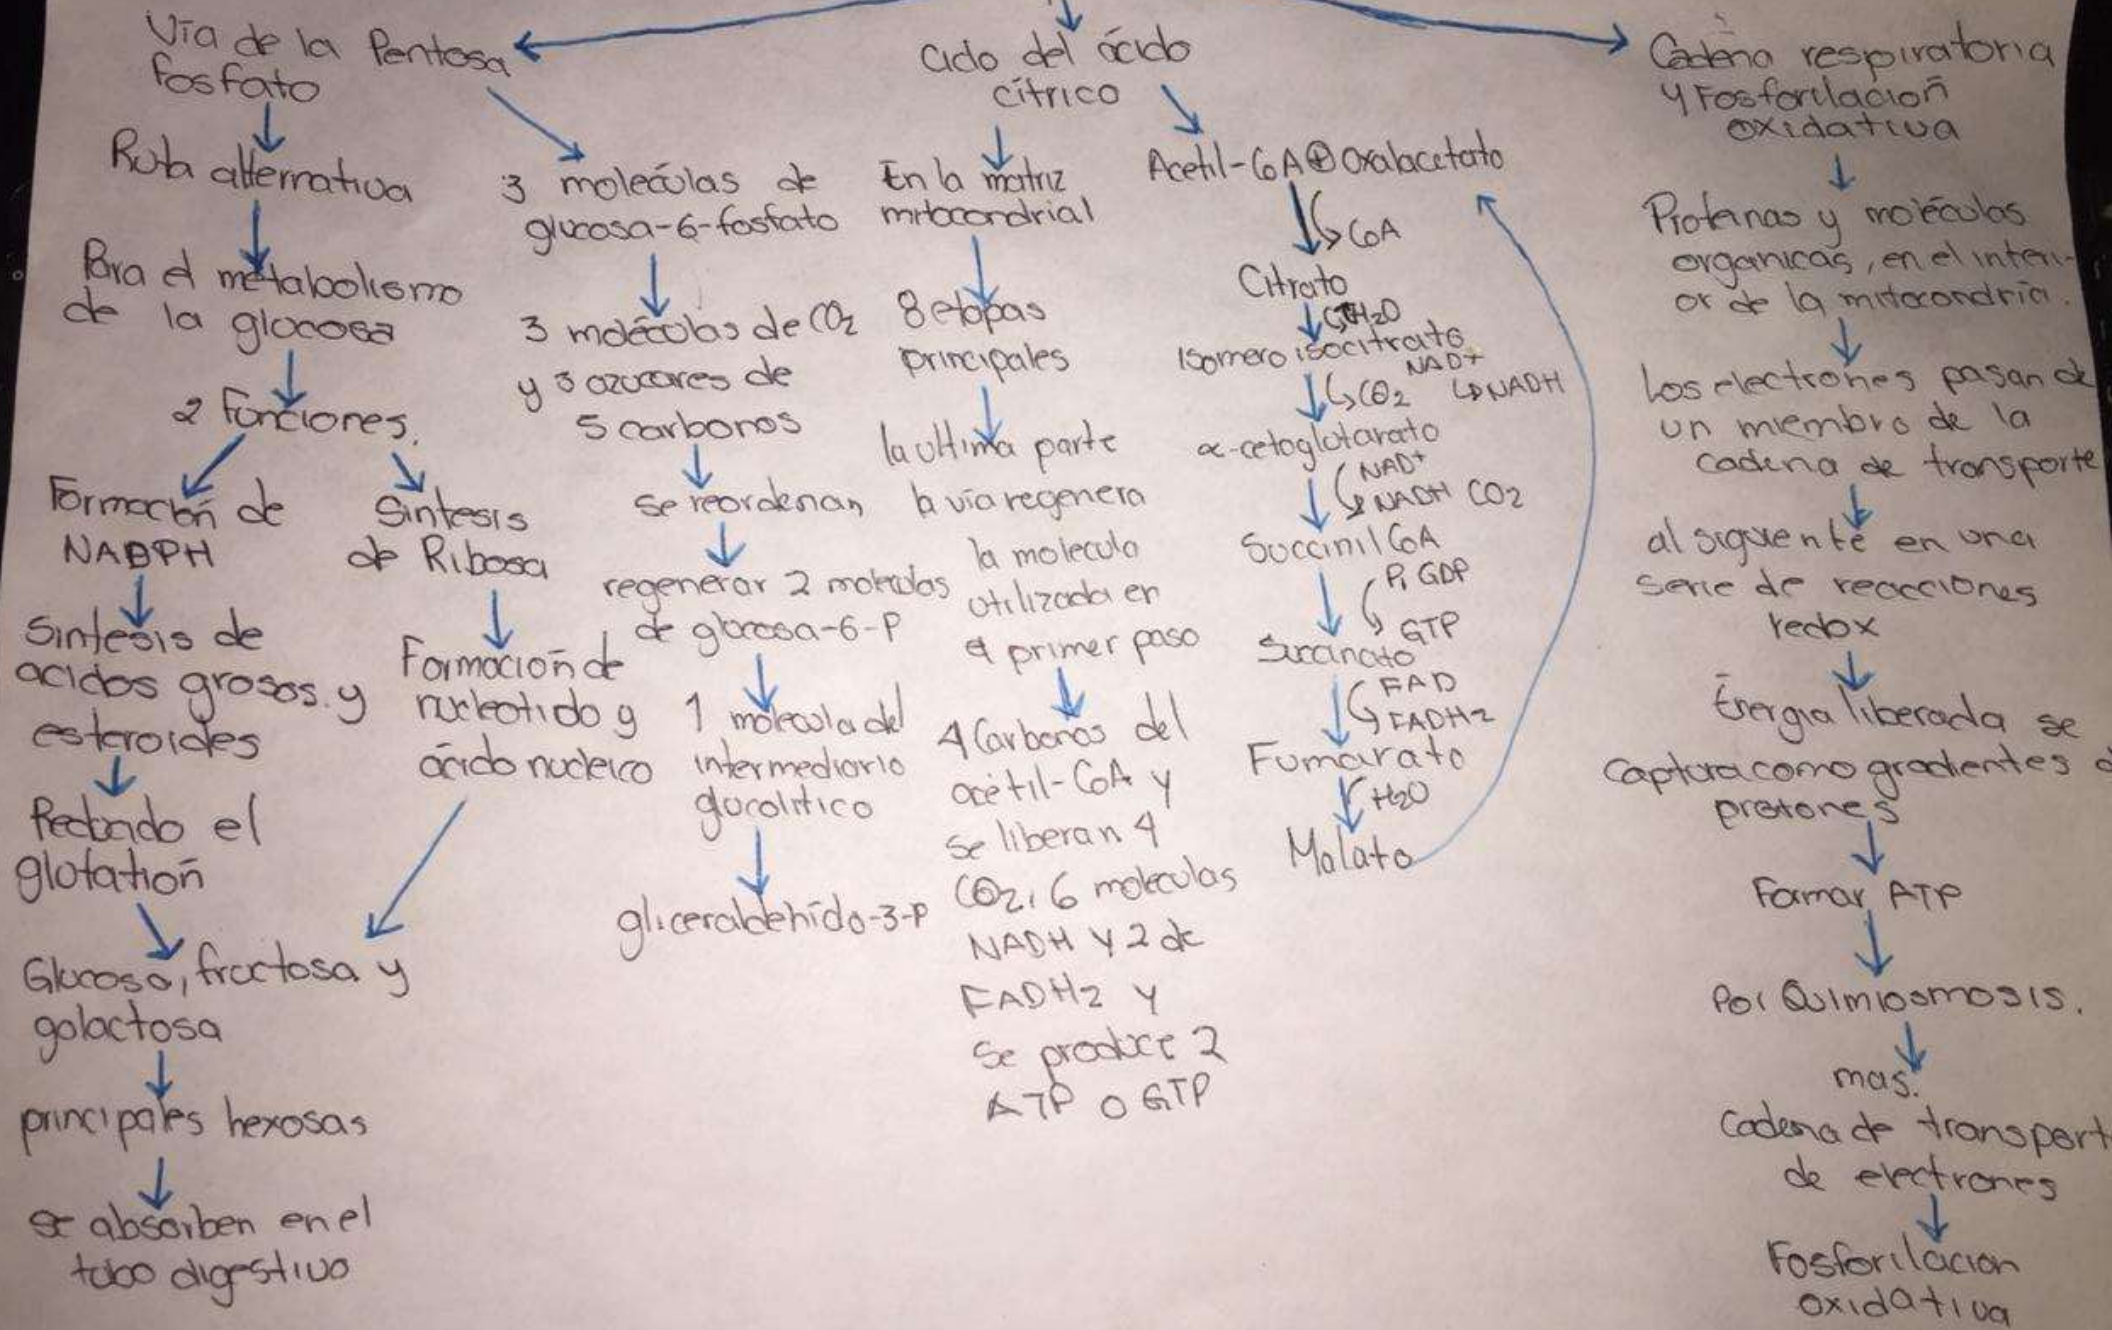 Vía de la Pentosa
fosfato
Ruta alternativa
Para el metabolismo
de la glocosa
2 funciones.
Formación de
NADPH
Sintesis de
acidos grasos y
esteroides
glotation
Sintesis
de Ribosa
Formacion de
nucleotido y
ácido nucleico
Glucosa, fructosa y
galactosa
principales hexosas
se absorben en el
tubo digestivo
3 moleculas de
glucosa-6-fosfato
3 moléculas de CO2
y 3 azucares de
5 carbonos
se reordenan
regenerar 2 moleculas
de glucosa-6-P
1 molecula del
intermediario
glucolitico
gliceraldehido-3-P
Ciclo del ácido
cítrico
En la matriz
mitocondrial
8 etapas
principales
la ultima parte
la vía regenera
la molecula
utilizada en
el primer paso
4 Carbonos del
acetil-CoA y
se liberan 4
CO2, 6 moleculas
NADH y 2 de
FADH2 y
se produce 2
ATP o GTP
Acetil-CoA + Oxalacetato
CoA
Citrato
H2O
Isomero isocitrato
NAD+
CO2 NADH
α-cetoglutarato
NAD+
NADH CO2
Succinil CoA
Pi GDP
GTP
Succinato
FAD
FADH2
Fumarato
H2O
Malato
Cadena respiratoria
y Fosforilacion
oxidativa
Proteinas y moléculas
organicas, en el interi-
or de la mitocondria.
Los electrones pasan de
un miembro de la
cadena de transporte
al siguiente en una
serie de reacciones
redox
Energia liberada se
captura como gradientes d
protones
Formar ATP
Por Quimiosmosis.
mas.
Cadena de transport
de electrones
Fosforilacion
oxidativa